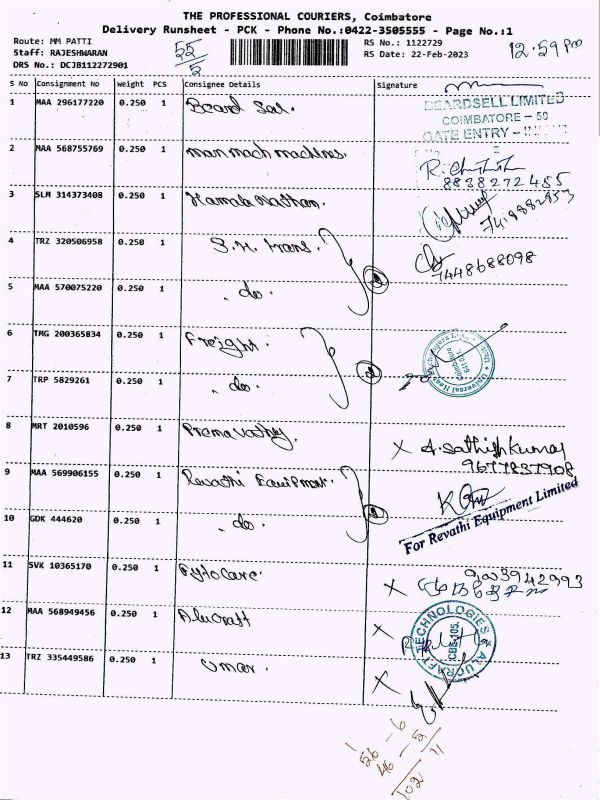 THE PROFESSIONAL COURIERS, Coimbatore
Delivery Runsheet - PCK - Phone No.:0422-3505555 - Page No.:1
Route: MM PATTI
Staff: RAJESHWARAN
DRS No.: DCJB112272901
55
5
RS No.: 1122729
RS Date: 22-Feb-2023
12:59 Pm
S No Consignment No Weight PCS Consignee Details Signature
1 MAA 296177220 0.250 1 Beard Sel.
BEARDSELL LIMITED
COIMBATORE - 50
GATE ENTRY -
2 MAA 568755769 0.250 1 man mach machines.
8838272455
3 SLM 314373408 0.250 1 Kamala Nathan.
4 TRZ 320506958 0.250 1 S.H. trans.
7448688098
5 MAA 570075220 0.250 1 - do -
6 TMG 200365834 0.250 1 Freight.
7 TRP 5829261 0.250 1 - do -
8 MRT 2010596 0.250 1 Prema vathy.
X A. Sathishkumar
9677837908
9 MAA 569906155 0.250 1 Revathi Equipment.
For Revathi Equipment Limited
10 GDK 444620 0.250 1 - do -
11 SVK 10365170 0.250 1 Pytocare.
X
12 MAA 568949456 0.250 1 Alucraft
X
ALUCRAFT TECHNOLOGIES
CBE-105.
13 TRZ 335449586 0.250 1 Umar.
X
56 - 6
46 - 5
102 11